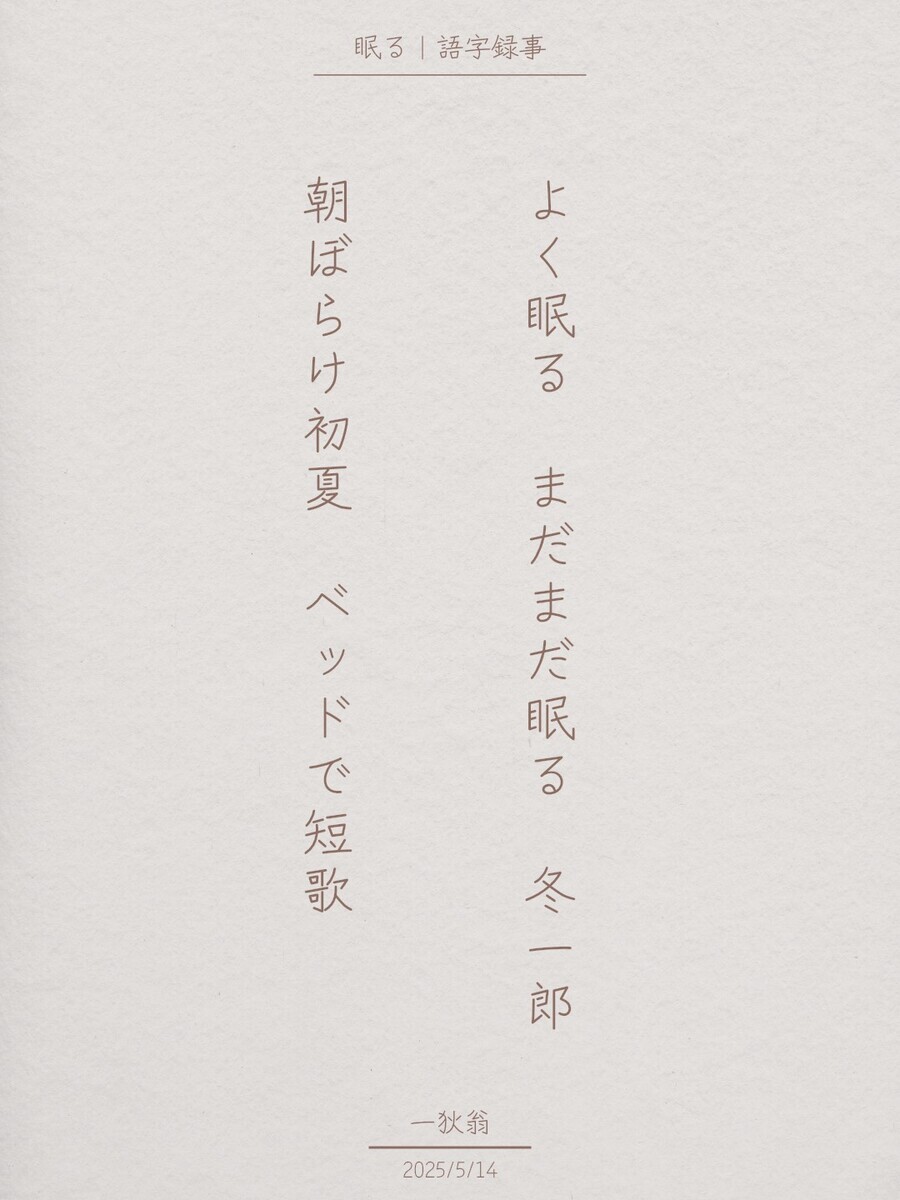 眠る｜語字録事
よく眠る　まだまだ眠る　冬一郎
朝ぼらけ初夏　ベッドで短歌
一狄翁
2025/5/14